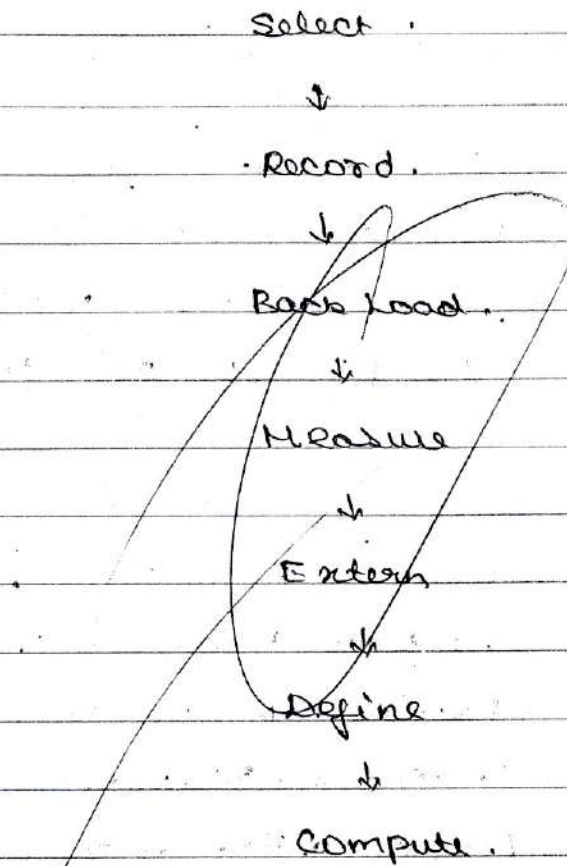 Select.
↓
Record.
↓
Back Load.
↓
Measure
↓
Extern
↓
Define.
↓
Compute.